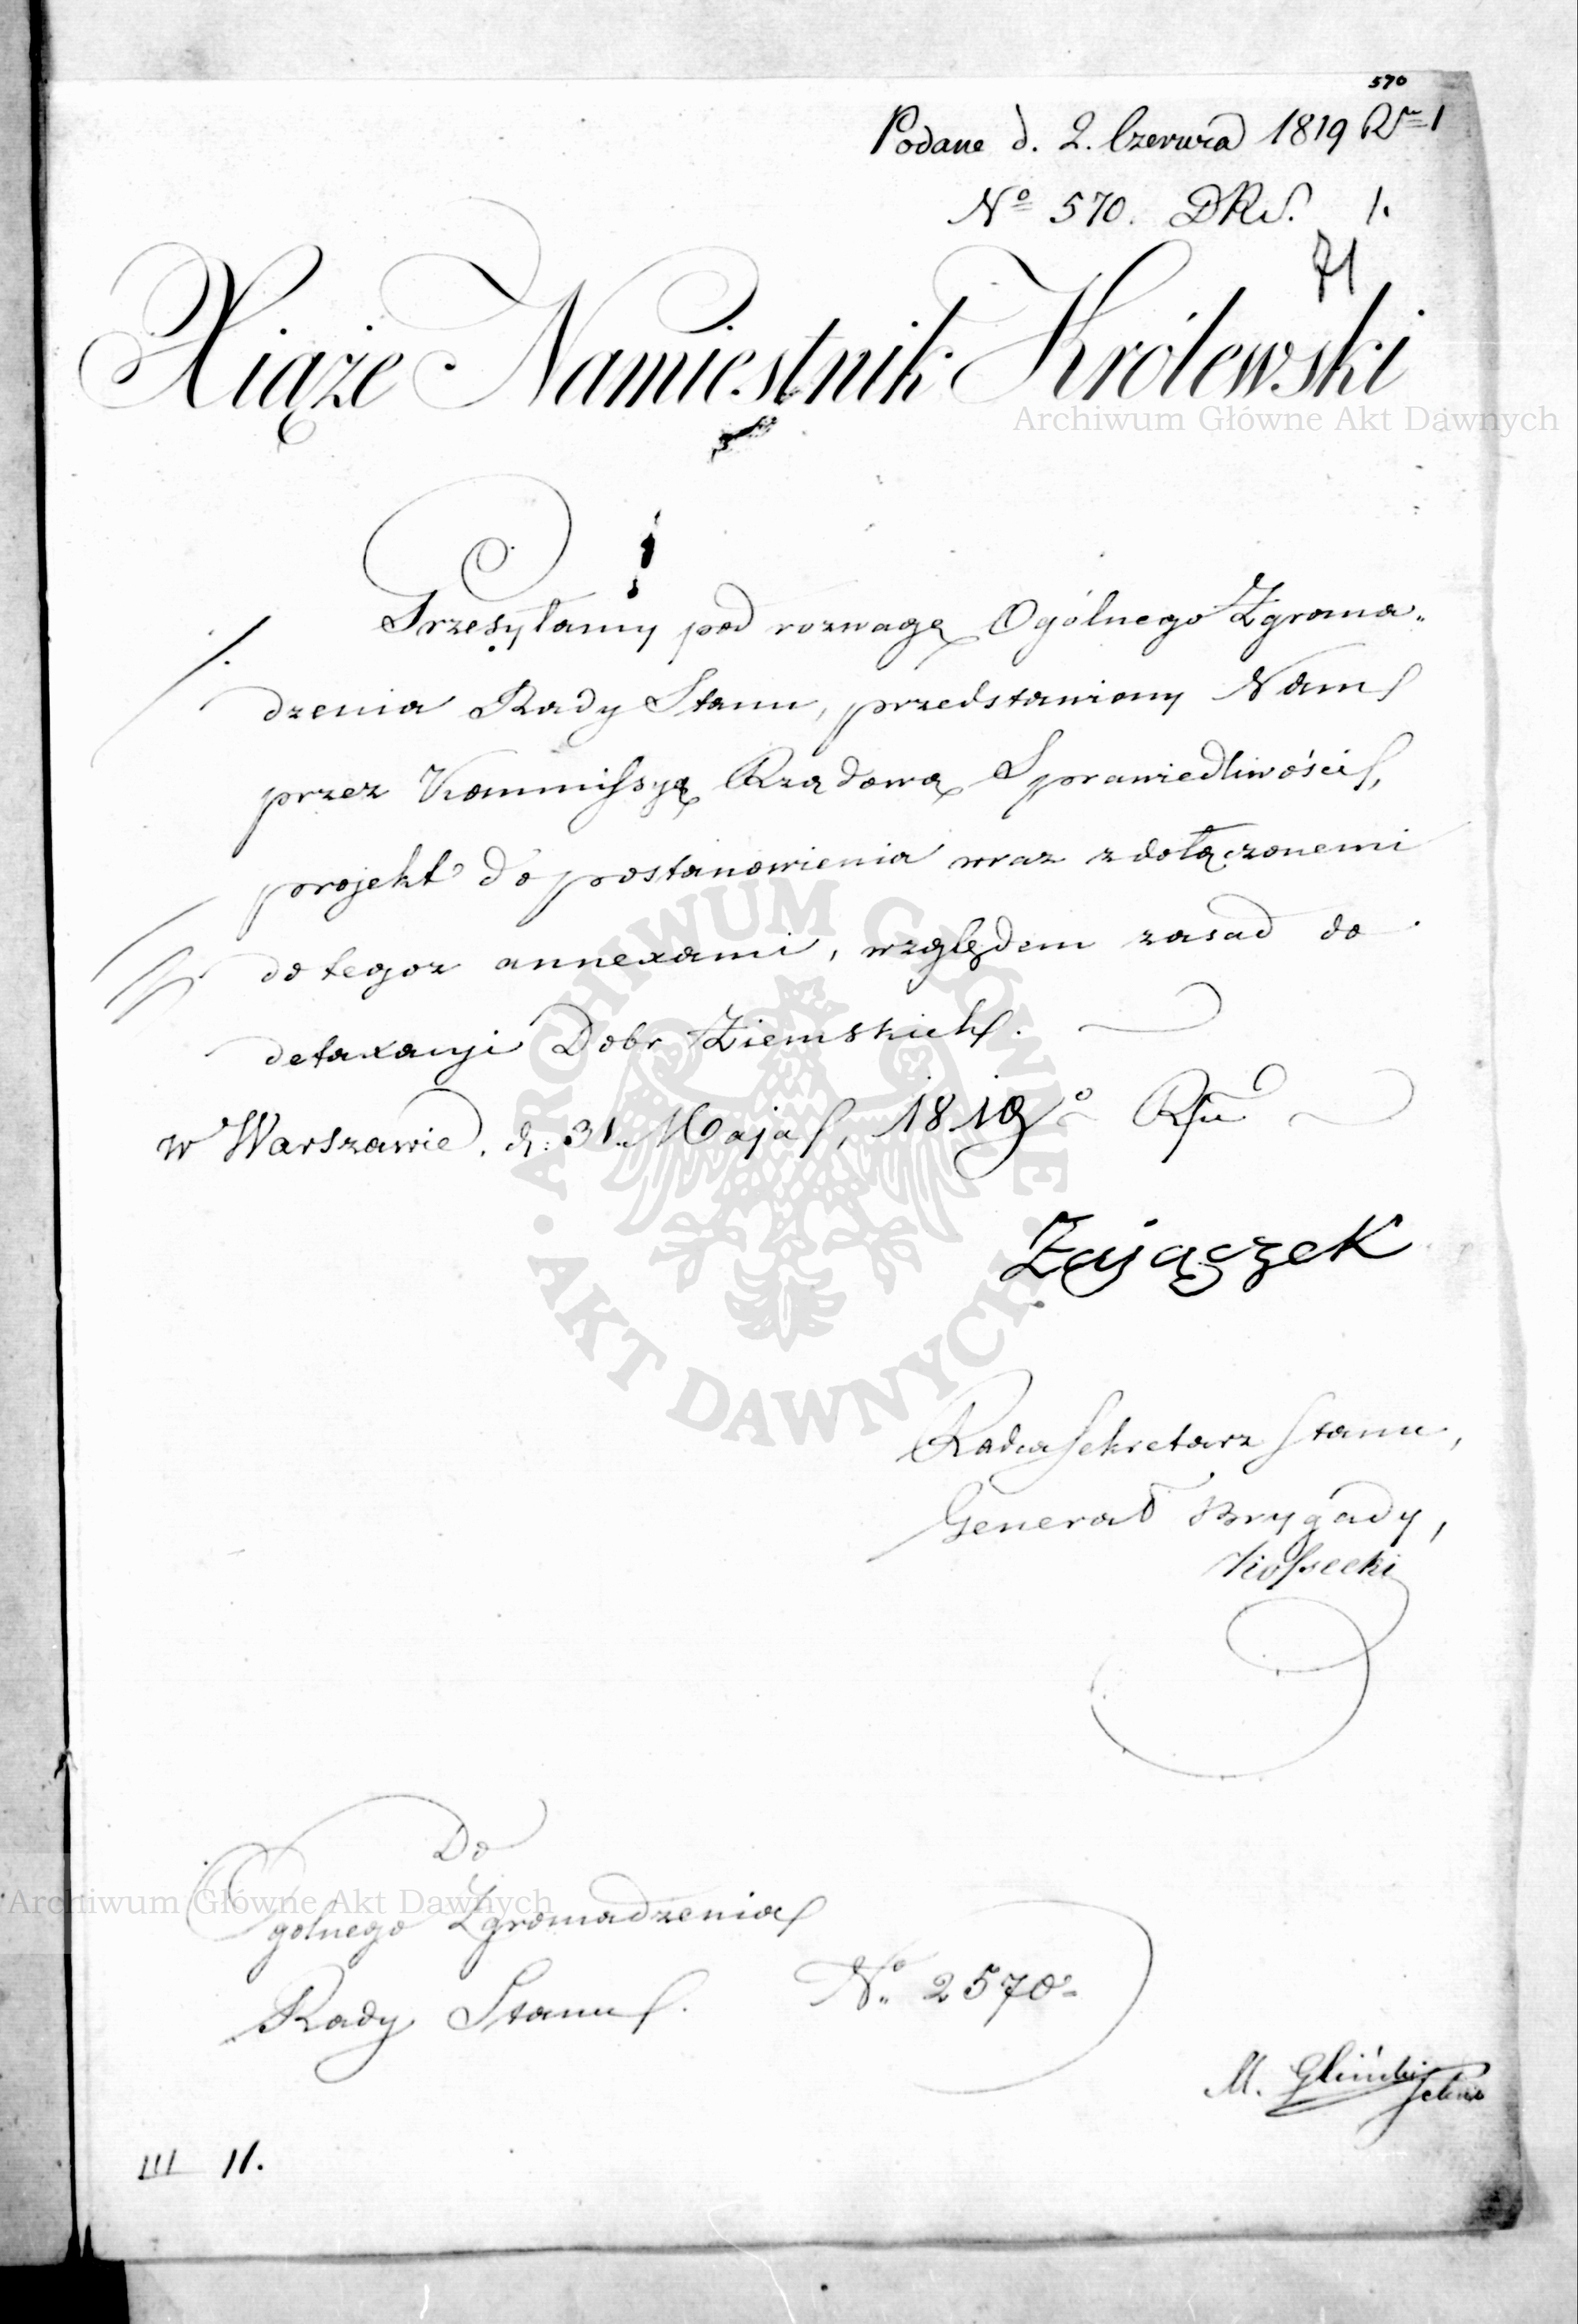 570
Podane d. 2. Czerwca 1819 R. 1
Nº 570. DRS. 1.
71
Xiąże Namiestnik Królewski
Archiwum Główne Akt Dawnych
Przesyłamy pod rozwagę Ogólnego Zgroma„
dzenia Rady Stanu, przedstawiony Nam
przez Kommissyą Rządową Sprawiedliwości,
projekt do postanowienia wraz z dołączonemi
do tegoz annexami, względem zasad do
detaxacyi Dobr Ziemskich.
w Warszawie, d: 31. Maja, 1819º Rku
Zajączek
Radca Sekretarz Stanu,
Generał Brygady,
Kossecki
ARCHIWUM GŁÓWNE
AKT DAWNYCH
Do
Ogolnego Zgromadzenia
Archiwum Główne Akt Dawnych
Rady Stanu.
Nº 2570.
M. Gliński
III 11.